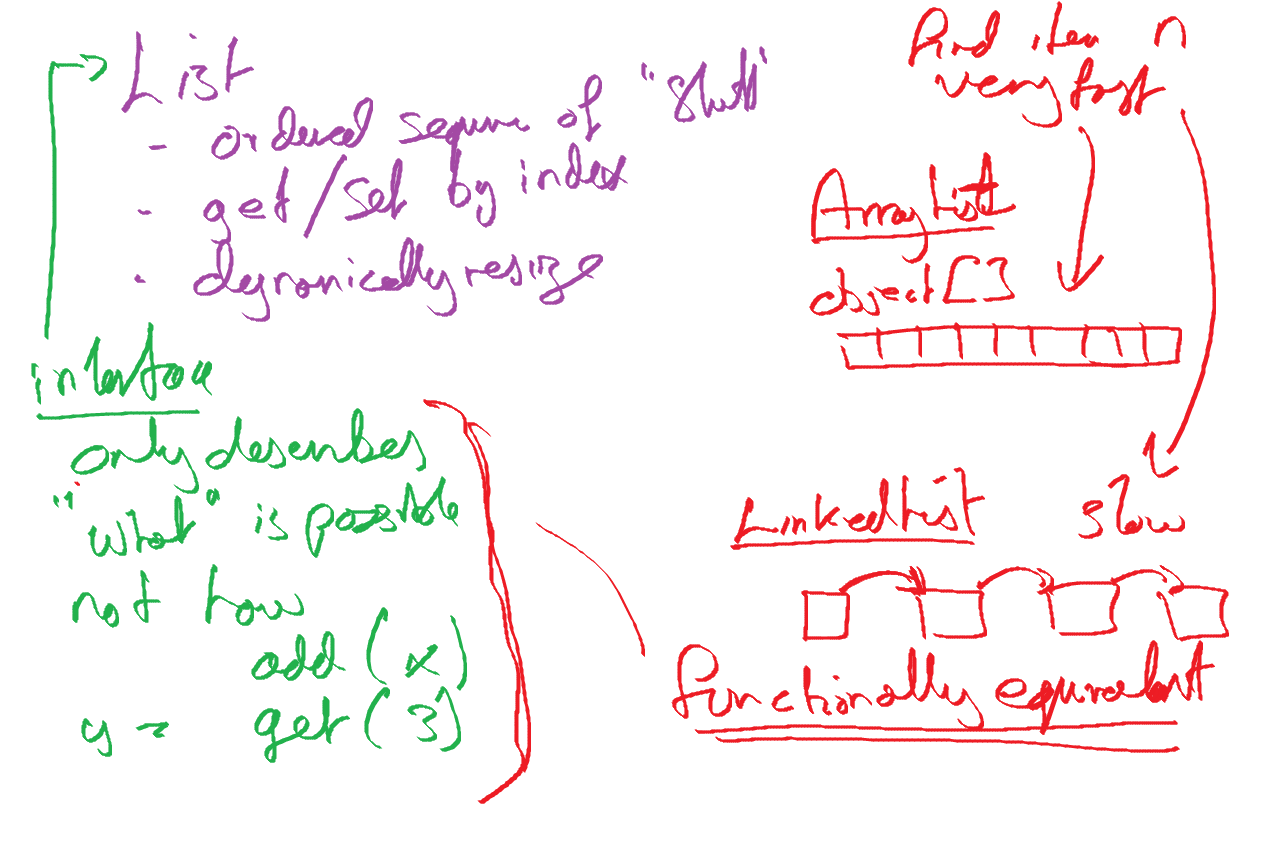 List
- ordered sequence of "stuff"
- get/set by index
- dynamically resize
interface
only describes
"what" is possible
not how
add(x)
y = get(3)
find item n
very fast
ArrayList
object[]
LinkedList
slow
functionally equivalent